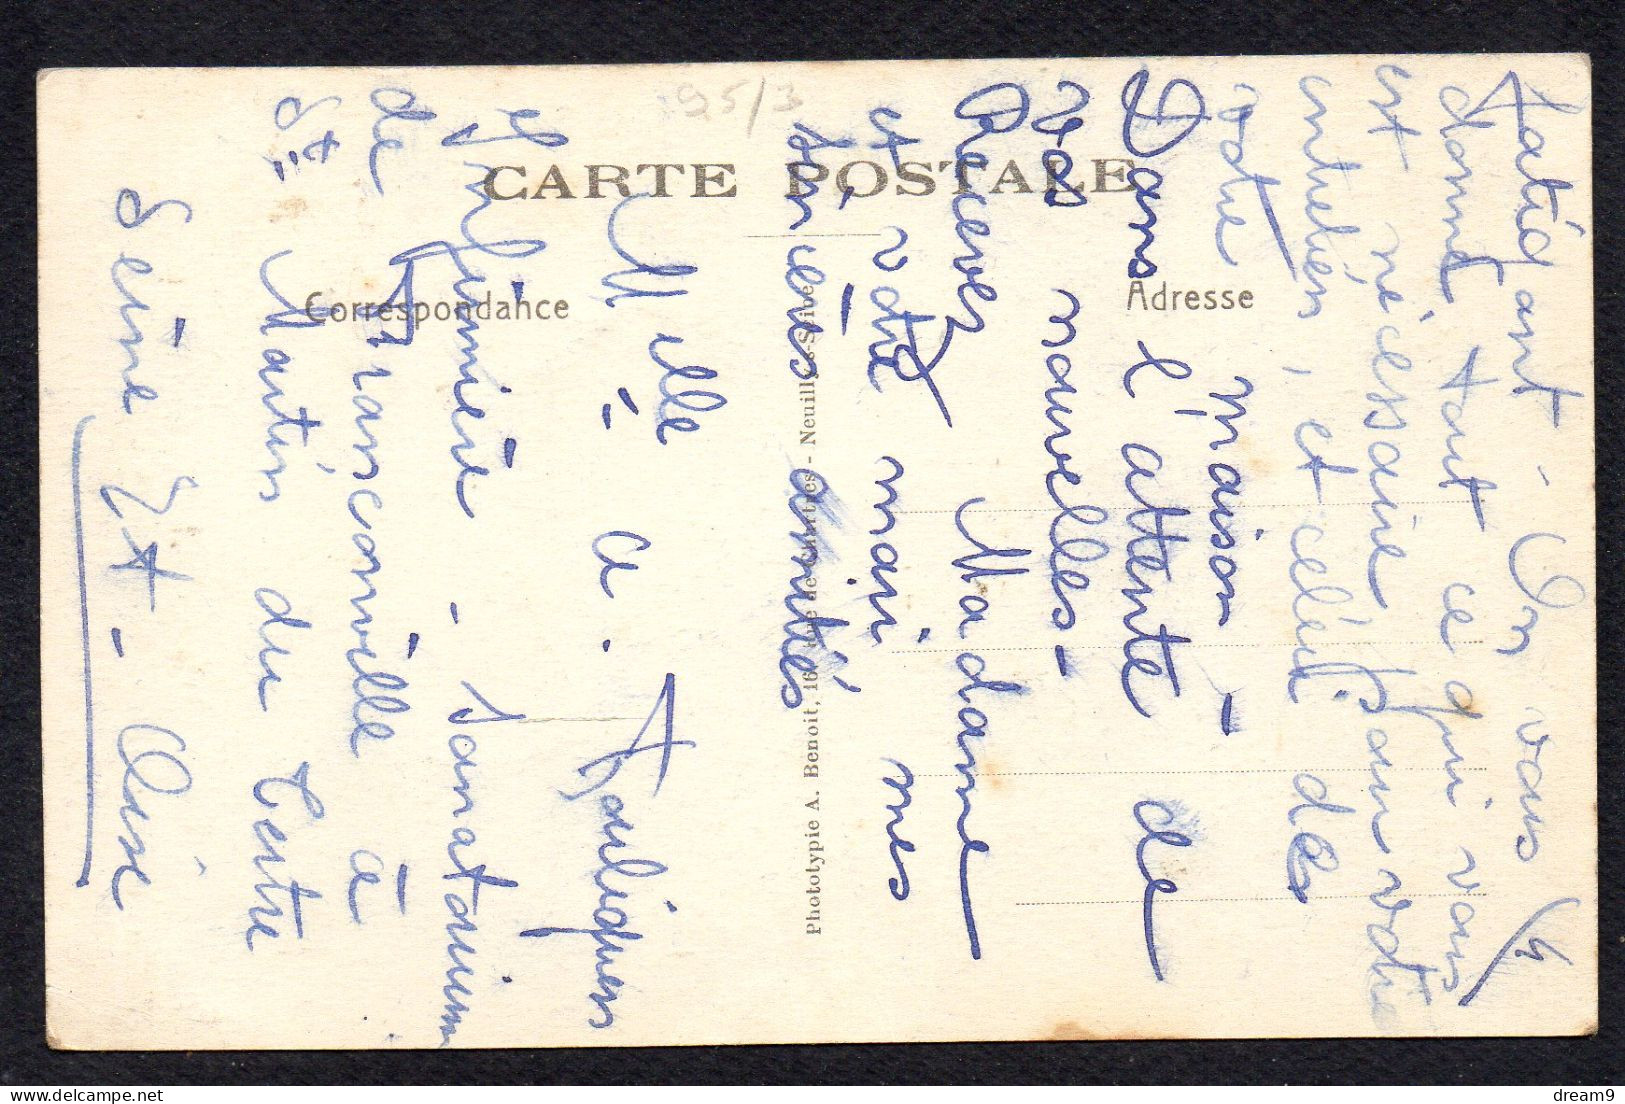 95/3
CARTE POSTALE
Correspondance
Adresse
Phototypie A. Benoit, 16, rue de Chartres - Neuilly-s-Seine
4
fatigant - On vous
donne tout ce qui vous
est nécessaire pour votre
entretien, et celui de
votre maison -
Dans l'attente de
vos nouvelles -
Recevez Madame
et votre mari mes
sincères amitiés
Melle A.
Infirmière - Sanatorium
de Franconville à
St Martin du Tertre
Seine et - Oise
delcampe.net
dream9